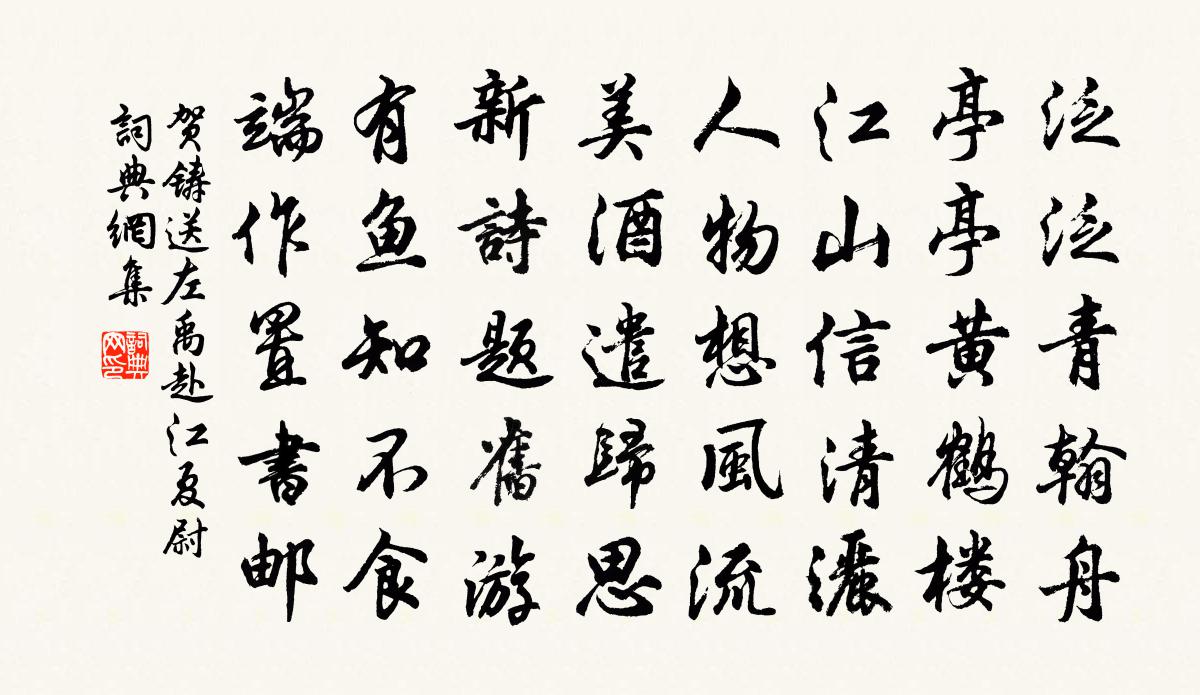 泛泛青翰舟
亭亭黄鶴楼
江山信清灑
人物想風流
美酒遣歸思
新詩题舊游
有魚知不食
端作置書邮
贺鑄送左禹赴江夏尉
詞典網集
詞典网印